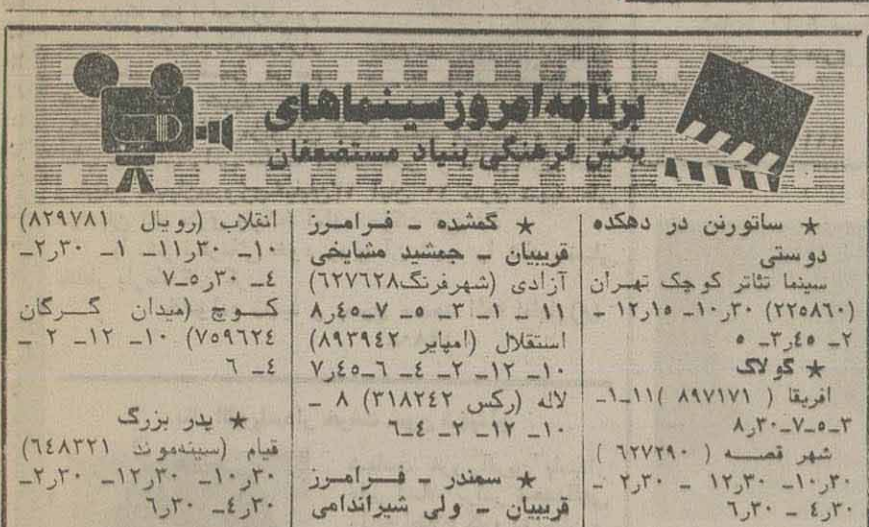 برنامه امروز سینماهای
بخش فرهنگی بنیاد مستضعفان
★ ساتورنن در دهکده
دوستی
سینما تئاتر کوچک تهران
(۲۲۵۸۶۰) ۱۰٫۳۰ـ ۱۲٫۱۵ ـ
۲ـ ۳٫۴۵ـ ۵
★ گولاک
افریقا ( ۸۹۷۱۷۱ )۱۱ـ۱ـ
۳ـ۵ـ۷ـ۸٫۳۰
شهر قصه ( ۶۲۷۲۹۰ )
۱۰٫۳۰ـ ۱۲٫۳۰ ـ ۲٫۳۰ ـ
۴٫۳۰ ـ ۶٫۳۰
★ گمشده ـ فرامرز
قریبیان ـ جمشید مشایخی
آزادی (شهرفرنگ۶۲۷۶۲۸)
۱۱ ـ ۱ـ ۳ـ ۵ـ ۷ـ۸٫۴۵
استقلال (امپایر ۸۹۳۹۴۲)
۱۰ـ ۱۲ـ ۲ـ ۴ـ ۶ـ۷٫۴۵
لاله (رکس ۳۱۸۲۴۲) ۸ ـ
۱۰ـ ۱۲ـ ۲ـ ۴ـ۶
★ سمندر ـ فرامرز
قریبیان ـ ولی شیراندامی
انقلاب (رویال ۸۲۹۷۸۱)
۱۰ـ ۱۱٫۳۰ـ ۱ـ ۲٫۳۰ـ
۴ـ ۵٫۳۰ـ۷
کوچ (میدان گرگان
۷۵۹۶۲۴) ۱۰ـ ۱۲ـ ۲ ـ
۴ـ ۶
★ پدر بزرگ
قیام (سینه‌موند ۶۴۸۳۲۱)
۱۰٫۳۰ـ ۱۲٫۳۰ـ ۲٫۳۰ـ
۴٫۳۰ـ ۶٫۳۰